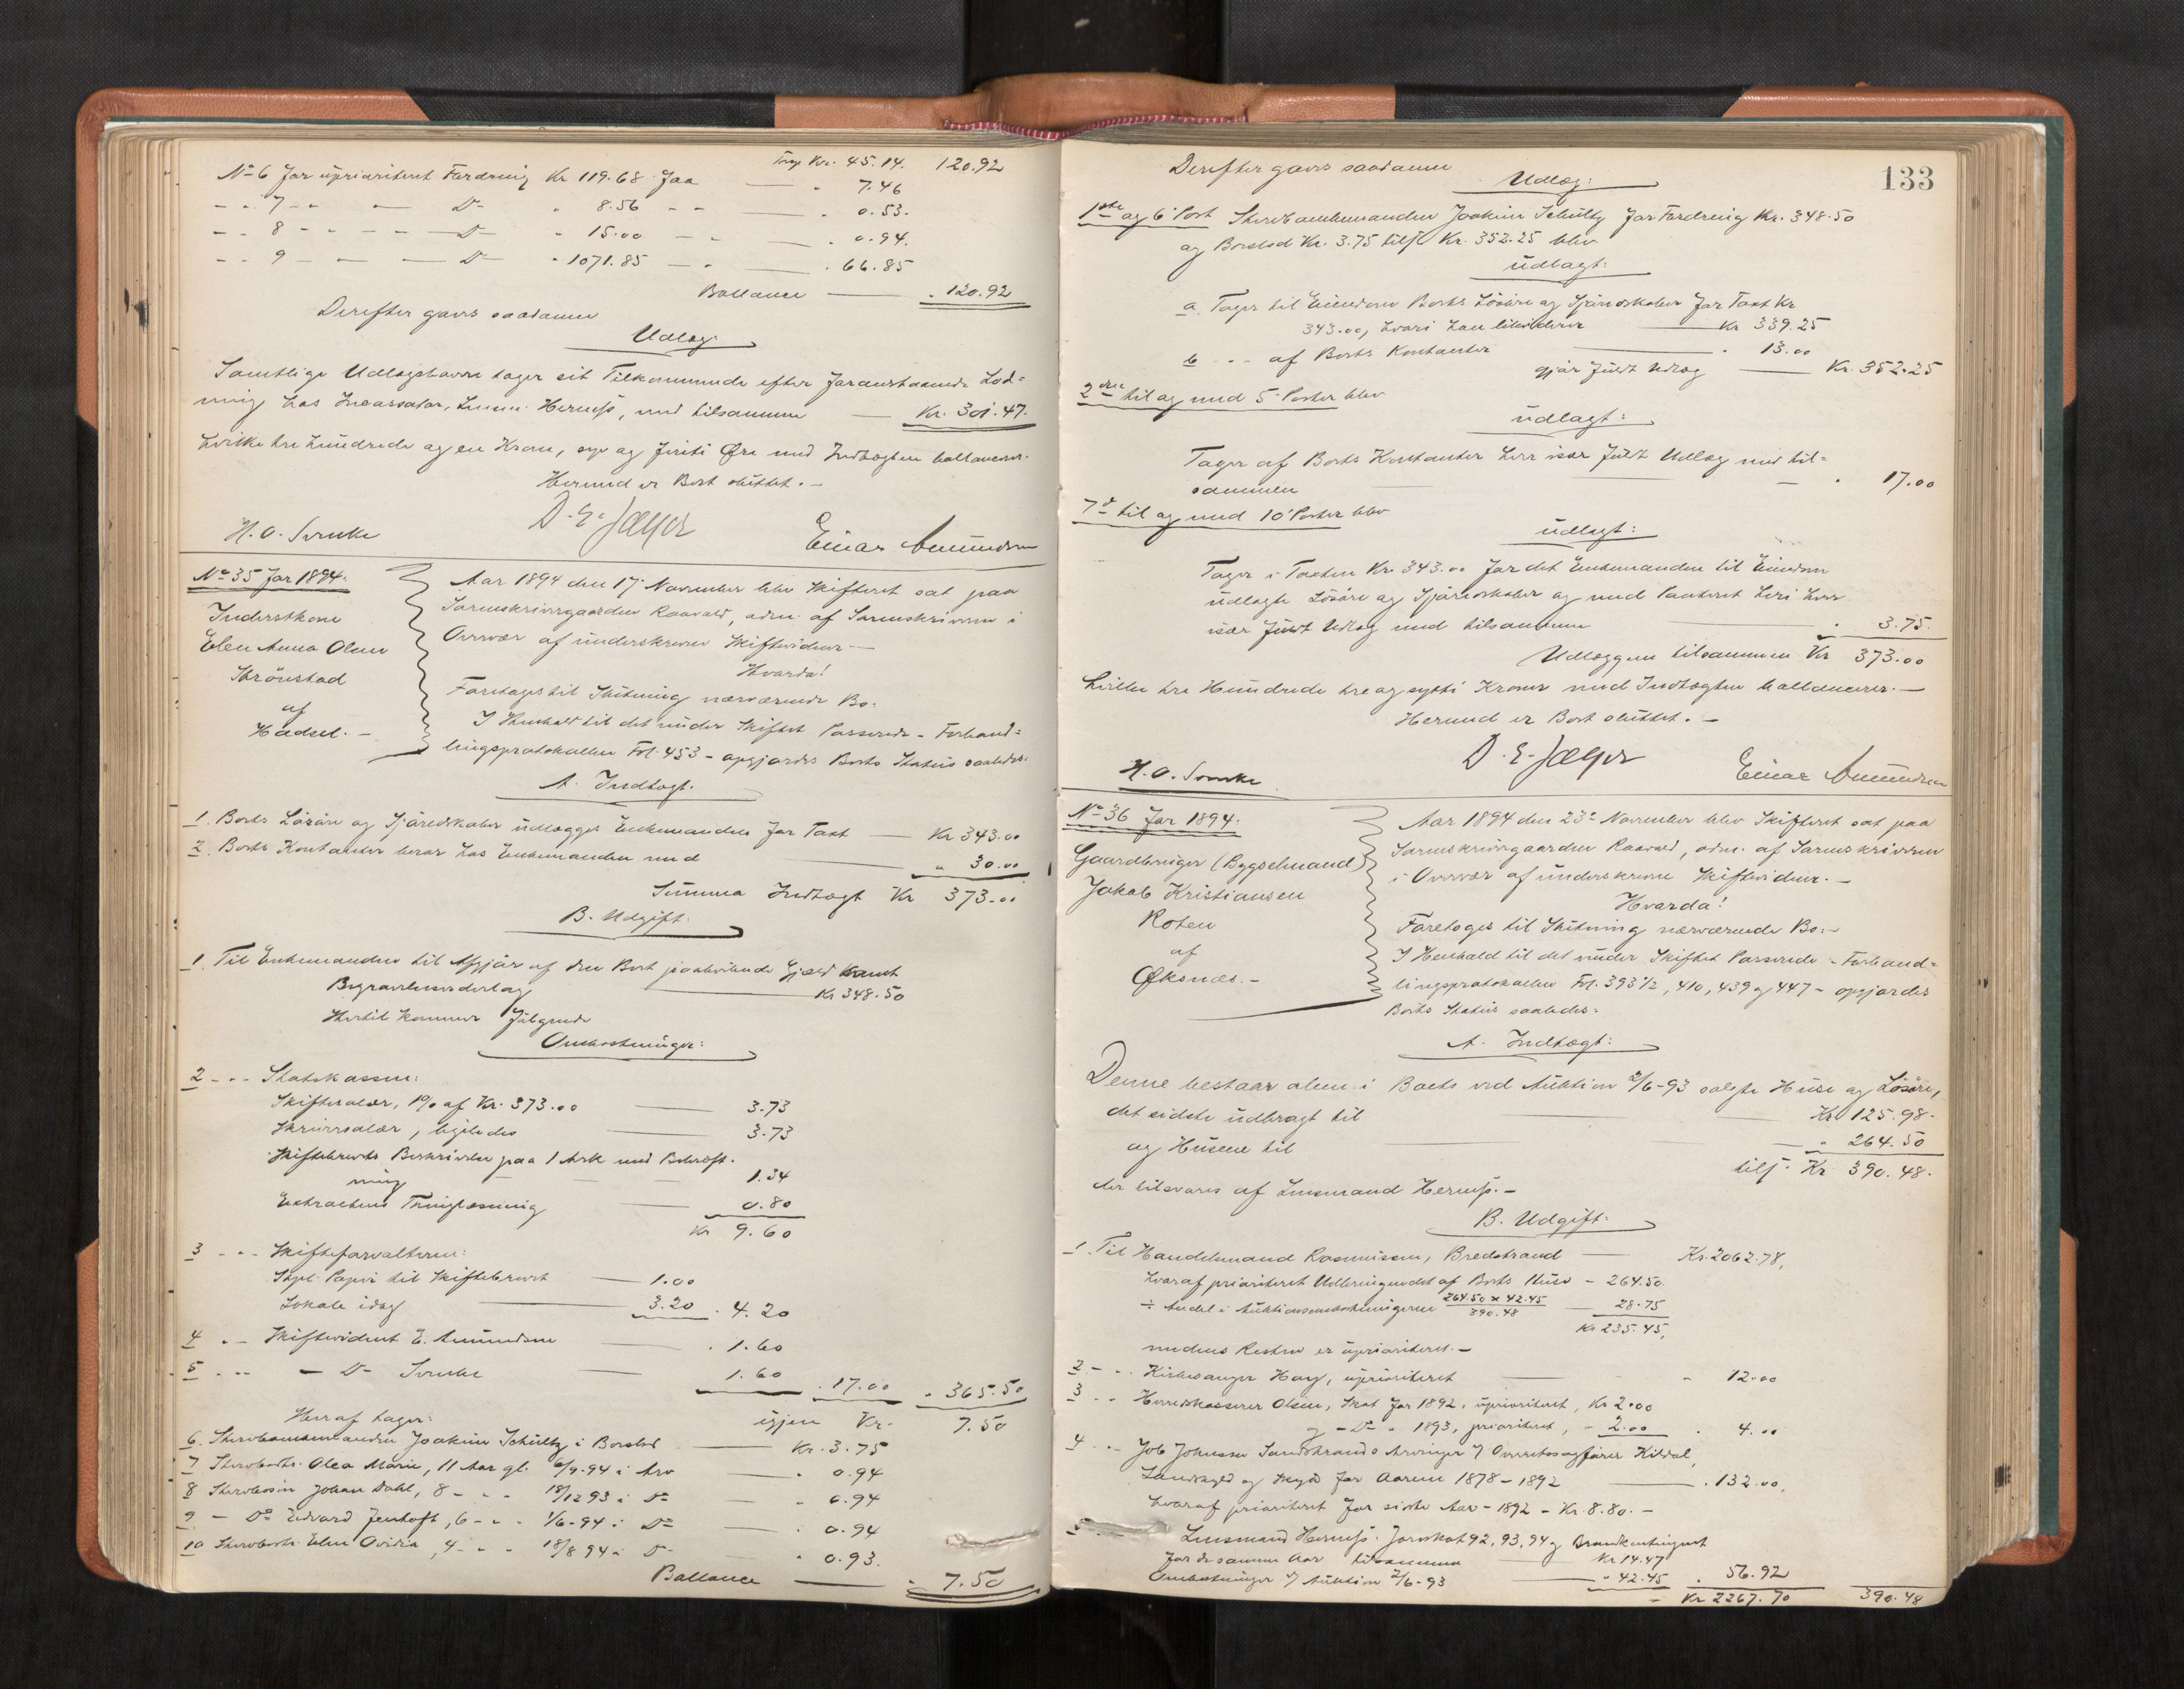 Trsp Kr. 45.14. 120.92
No 6 for uprioriteret Fordring Kr 119.68 faa — " 7.46
- " 7 - " — Do " 8.56 - - — " 0.53.
- - 8 - - - - Do - 15.00 - - — " 0.94.
- - 9 - - — Do " 1071.85 - - — " 66.85
Ballance — " 120.92
Derefter gaves saadanne
Udlæg:
Samtlige Udlægshavere tager sit Tilkommende efter foranstaaende Lod=
ning hos Incassator, Lensm. Hernes, med tilsammen — Kr. 301.47.
hvilke tre hundrede og en Krone, syv og firti Øre med Indtægten ballancerer.
Hermed er Boet sluttet. -
H. O. Svenke D. E. Jæger Einar Amundsen
No 35 for 1894.
Inderstkone
Elen Anna Olsen
Strønstad
af
Hadsel. -
Aar 1894 den 17. November blev Skifteret sat paa
Sorenskrivergaarden Raavold, adm. af Sorenskriveren i
Overvær af underskrevne Skiftevidner. -
Hvorda!
Foretoges til Slutning nærværende Bo.
I Henhold til det under Skiftet Passerede - Forhand=
lingsprotokollen Fol. 453 - opgjordes Boets Status saaledes:
A. Indtægt.
1. Boets Løsøre og Fjæredskaber udlægges Enkemanden for Taxt — Kr 343.00
2. Boets Kontanter beror hos Enkemanden med — " 30.00
Summa Indtægt Kr 373.00
B. Udgift:
1. Til Enkemanden til Afgjør af den Boet paahvilende Gjæld samt
Begravelsesderlag — Kr 348.50
Hertil kommer følgende
Omkostninger:
2 - - Statskassen:
Skiftesalær, 1% af Kr. 373.00 — 3.73
Skriversalær, ligeledes — 3.73
Skiftebrevets Beskrivelse paa 1 Ark med Bekræft=
ning — 1.34
Extractens Thinglæsning — 0.80
Kr 9.60
3 - - Skifteforvalteren:
Stpl. Papir til Skiftebrevet — 1.00
Lokale idag — 3.20 . 4.20
4 - - Skiftevidnet E. Amundsen — . 1.60
5 - - — Do Svenke — 1.60 . 17.00 " 365.50
igjen Kr. 7.50
Heraf tager:
6. Stervboenkemanden Joakim Schultz i Boeslod — Kr. 3.75
7 Stervbodtr. Olea Marie, 11 Aar gl. 6/9-94 i Arv — " 0.94
8 Stervbosøn Johan Dahl, 8 - - - 18/12 93 i Do — " 0.94
9 - Do Edvard Jentoft, 6 - - - 1/6-94 i Do — . 0.94
10 Stervbodtr. Elen Ovidia, 4 - - - 18/8 94 i Do — " 0.93.
Ballance — " 7.50
133
Derefter gaves saadanne
Udlæg:
1ste og 6' Post Stervboenkemanden Joakim Schultz for Fordring Kr. 348.50
og Boeslod Kr. 3.75 tils. Kr. 352.25 blev
udlagt:
a. Tager til Eiendom Boets Løsøre og Fjæreredskaber for Taxt Kr
343.00, hvori han likviderer — Kr 339.25
b - - af Boets Kontanter — . 13.00
gjør fuldt Udlæg — Kr. 352.25
2den til og med 5' Poster blev
udlagt:
Tager af Boets Kontanter hver især fuldt Udlæg med til=
sammen — " 17.00
7de til og med 10' Poster blev
udlagt:
Tager i Taxten Kr. 343.00 for det Enkemanden til Eiendom
udlagte Løsøre og Fjæreredskaber og med Panteret heri hver
især fuldt Udlæg med tilsammen — " 3.75.
Udlæggene tilsammen Kr 373.00
hvilke tre Hundrede tre og sytti Kroner med Indtægten ballancerer. -
Hermed er Boet sluttet. -
H. O. Svenke D. E. Jæger Einar Amundsen
No 36 for 1894.
Gaardbruger (Bygselmand)
Jakob Kristiansen
Roten
af
Øksnes. -
Aar 1894 den 23' November blev Skifteret sat paa
Sorenskrivergaarden Raavold, adm. af Sorenskriveren
i Overvær af underskrevne Skiftevidner. -
Hvorda!
Foretoges til Slutning nærværende Bo. -
I Henhold til det under Skiftet Passerede - Forhand=
lingsprotokollen Fol. 393 1/2, 410, 439 og 447 - opgjordes
Boets Status saaledes:
A. Indtægt:
Denne bestaar alene i Boets ved Auktion 2/6-93 solgte Huse og Løsøre,
det sidste udbragt til — Kr 125.98.
og Husene til — " 264.50
tils. Kr 390.48.
der tilsvares af Lensmand Hernes. -
B. Udgift:
1. Til Handelsmand Rasmussen, Bredstrand — Kr. 2062.78,
hvoraf prioriteret Udbringendet af Boets Huse - 264.50.
÷ Andel i Auktionsomkostningerne 264.50 x 42.45 / 390.48 — 28.75
Kr 235.45,
medens Resten er uprioriteret. -
2 - - Kirkesanger Haug, uprioriteret — " 12.00
3 - - Herredskasserer Olsen, Skat for 1892, uprioriteret, Kr 2.00
og - Do " 1893, prioriteret, - 2.00 . 4.00
4 - - Job Johnsen Sandstrands Arvinger v/ Overretssagfører Kildal,
Landskyld og Skyd for Aarene 1878 - 1892 — . 132.00,
hvoraf prioriteret for sidste Aar - 1892 - Kr. 8.80. -
5 Lensmand Hernes. Jordskat 92, 93, 94 og Brandkontingent
for de samme Aar tilsammen — Kr 14.47
Omkostninger v/ Auktion 2/6-93 — " 42.45 . 56.92
Kr 2267.70 390.48